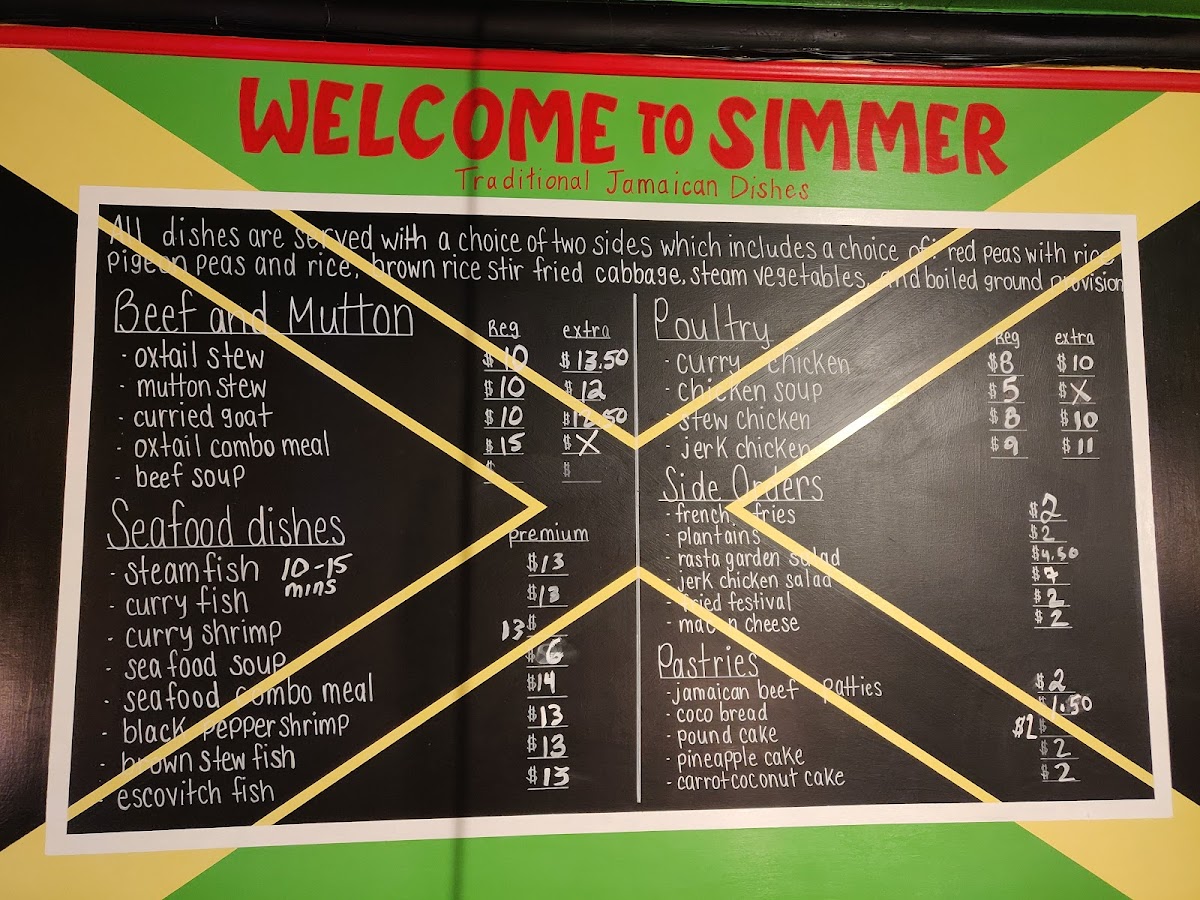 WELCOME TO SIMMER
Traditional Jamaican Dishes
All dishes are served with a choice of two sides which includes a choice of: red peas with rice
pigeon peas and rice, brown rice stir fried cabbage, steam vegetables, and boiled ground provision
Beef and Mutton Reg extra
- oxtail stew $10 $13.50
- mutton stew $10 $12
- curried goat $10 $12.50
- oxtail combo meal $15 $X
- beef soup $ $
Seafood dishes premium
- steam fish 10-15 mins $13
- curry fish $13
- curry shrimp 13$
- sea food soup $6
- seafood combo meal $14
- black pepper shrimp $13
- brown stew fish $13
- escovitch fish $13
Poultry Reg extra
- curry chicken $8 $10
- chicken soup $5 $X
- stew chicken $8 $10
- jerk chicken $9 $11
Side Orders
- french fries $2
- plantains $2
- rasta garden salad $4.50
- jerk chicken salad $7
- fried festival $2
- mac n cheese $2
Pastries
- jamaican beef patties $2
- coco bread $1.50
- pound cake $2 $
- pineapple cake $2
- carrot coconut cake $2